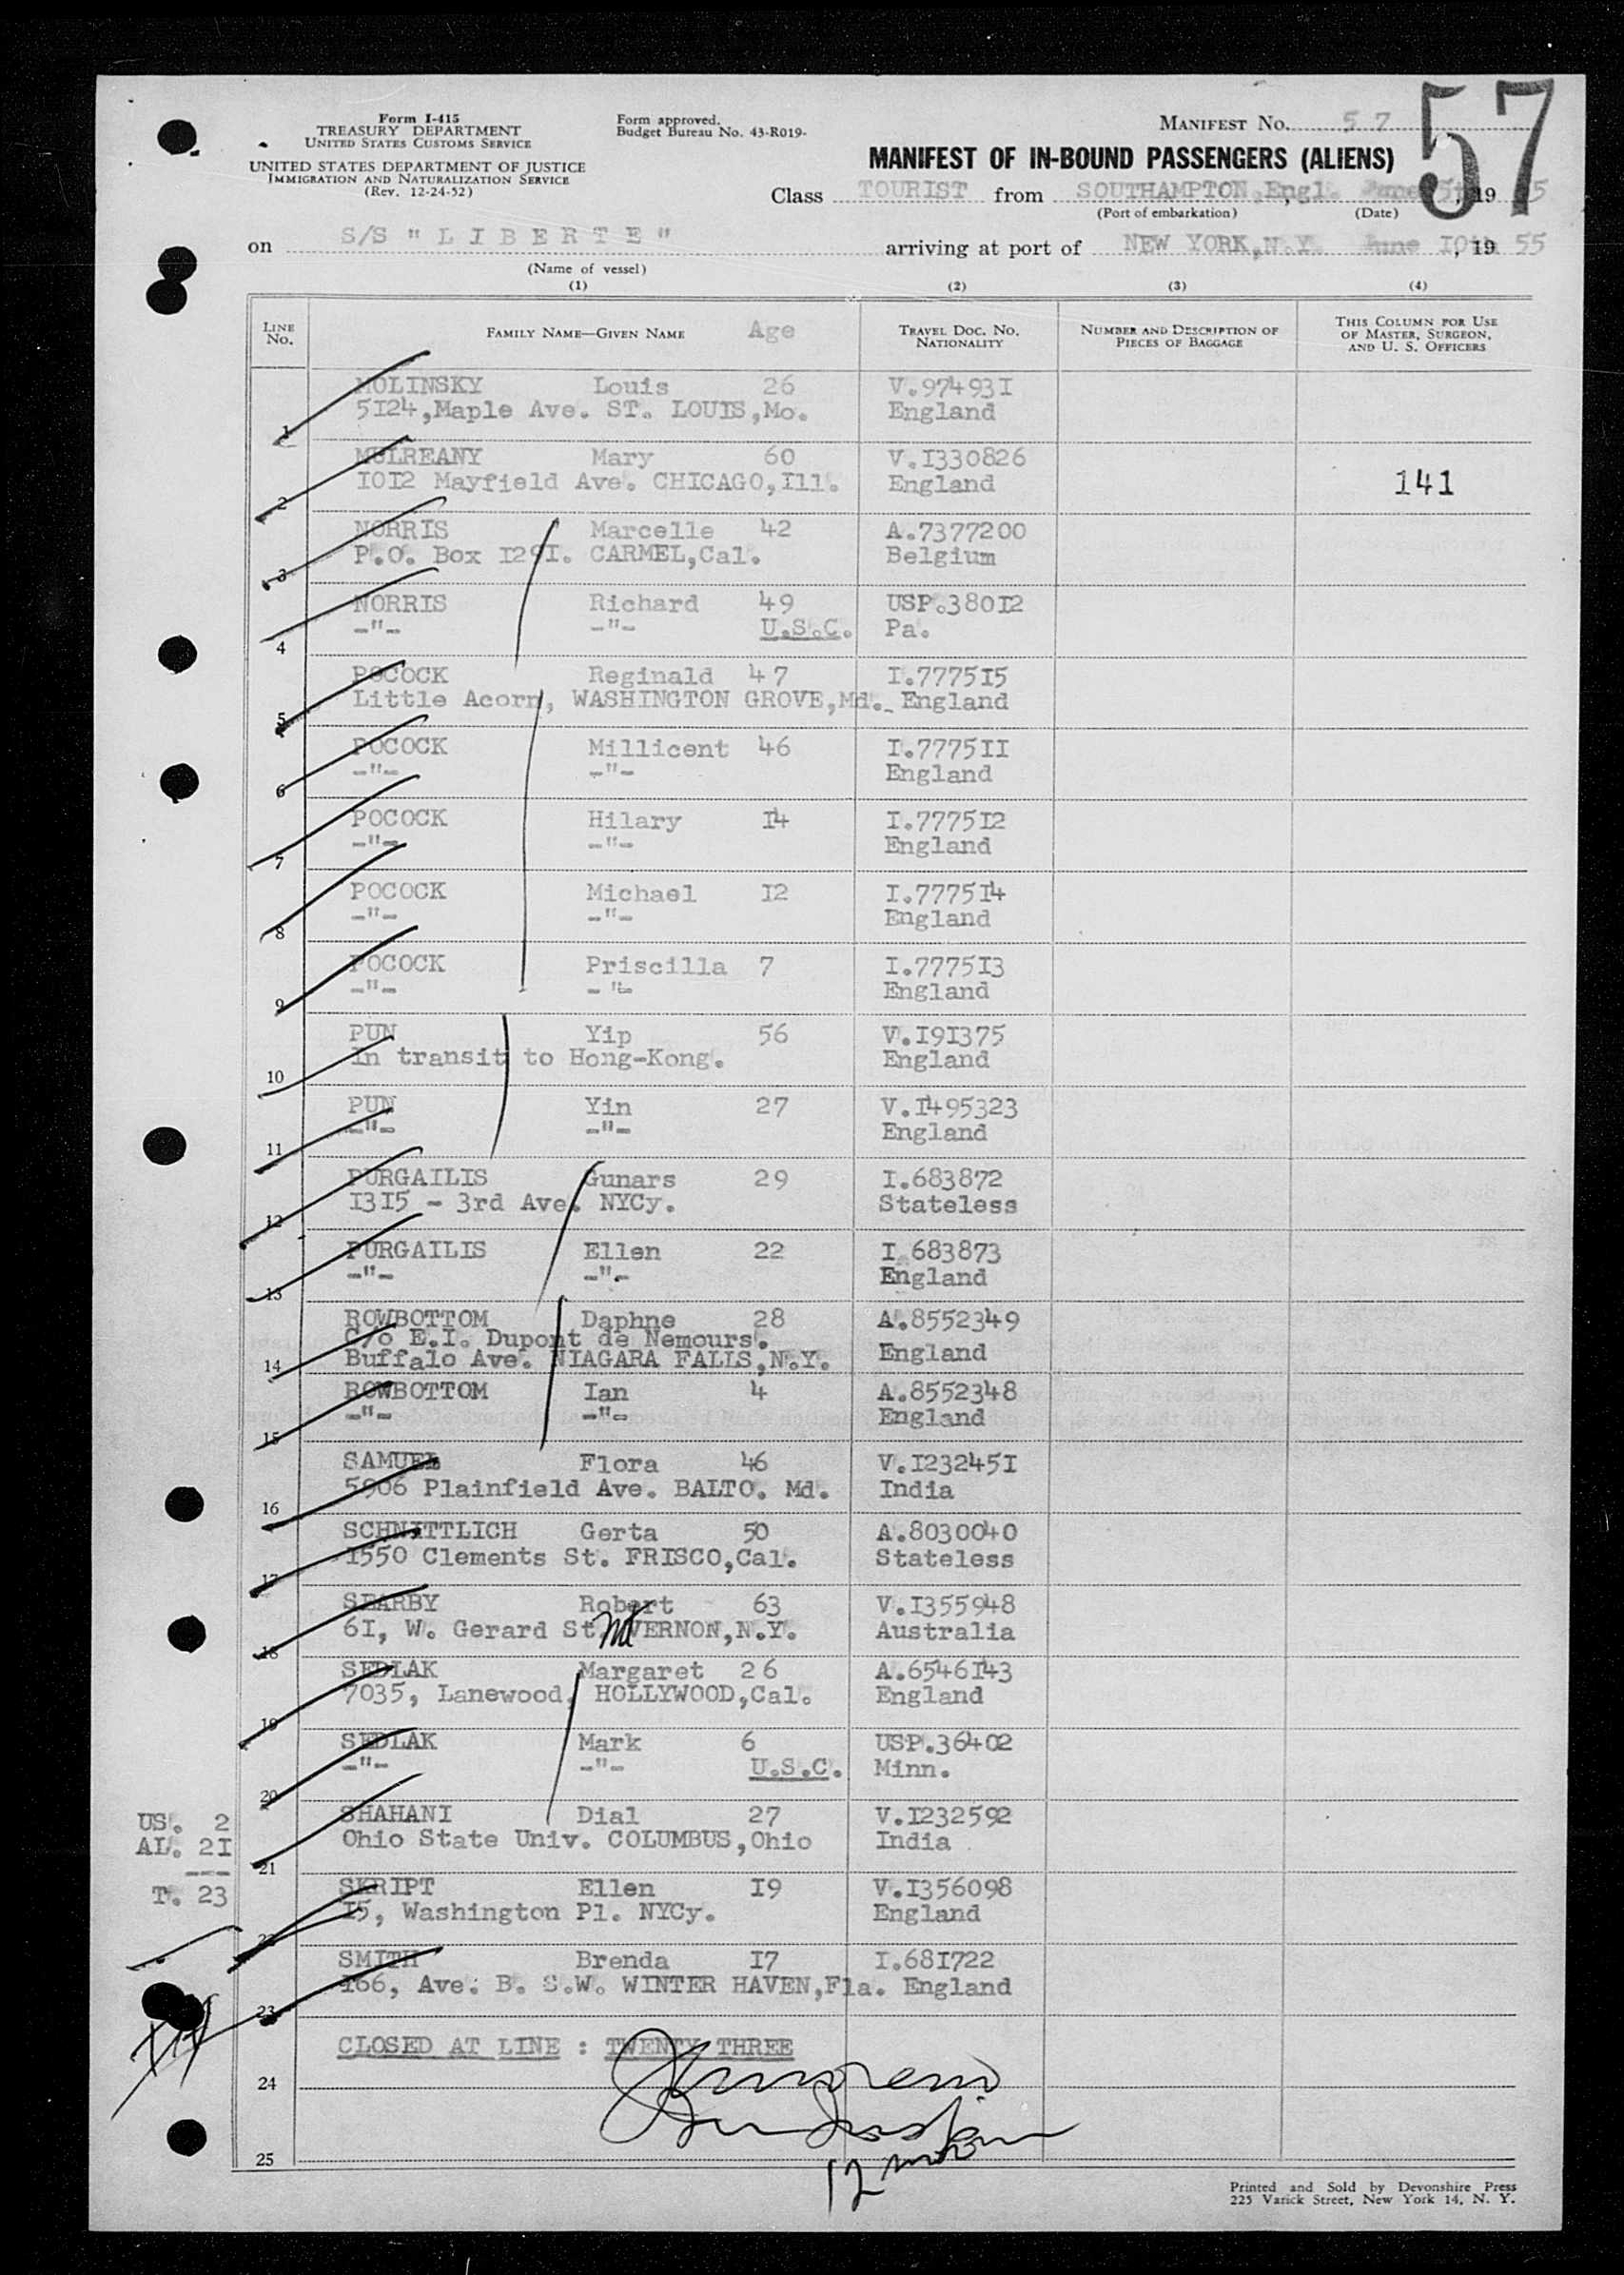 Form I-415
TREASURY DEPARTMENT
UNITED STATES CUSTOMS SERVICE
UNITED STATES DEPARTMENT OF JUSTICE
IMMIGRATION AND NATURALIZATION SERVICE
(Rev. 12-24-52)
Form approved.
Budget Bureau No. 43-R019-
MANIFEST NO. 57
57
MANIFEST OF IN-BOUND PASSENGERS (ALIENS)
Class TOURIST from SOUTHAMPTON,Engl. June 5th, 19 55
(Port of embarkation) (Date)
on S/S " L I B E R T E " arriving at port of NEW YORK,N.Y. June 10th, 19 55
(Name of vessel)
(1) (2) (3) (4)
LINE No. FAMILY NAME—GIVEN NAME Age TRAVEL DOC. NO. NATIONALITY NUMBER AND DESCRIPTION OF PIECES OF BAGGAGE THIS COLUMN FOR USE OF MASTER, SURGEON, AND U. S. OFFICERS
MOLINSKY Louis 26 V.974931
5124,Maple Ave. ST. LOUIS,Mo. England
1
MULREANY Mary 60 V.1330826
1012 Mayfield Ave. CHICAGO,Ill. England 141
2
NORRIS Marcelle 42 A.7377200
P.O. Box 1291. CARMEL,Cal. Belgium
3
NORRIS Richard 49 USP.38012
-"- -"- U.S.C. Pa.
4
POCOCK Reginald 47 I.777515
Little Acorn, WASHINGTON GROVE,Md. England
5
POCOCK Millicent 46 I.777511
-"- -"- England
6
POCOCK Hilary 14 I.777512
-"- -"- England
7
POCOCK Michael 12 I.777514
-"- -"- England
8
POCOCK Priscilla 7 I.777513
-"- -"- England
9
PUN Yip 56 V.191375
In transit to Hong-Kong. England
10
PUN Yin 27 V.1495323
-"- -"- England
11
PURGAILIS Gunars 29 I.683872
1315 - 3rd Ave. NYCy. Stateless
12
PURGAILIS Ellen 22 I.683873
-"- -"- England
13
ROWBOTTOM Daphne 28 A.8552349
C/o E.I. Dupont de Nemours.
Buffalo Ave. NIAGARA FALLS,N.Y. England
14
ROWBOTTOM Ian 4 A.8552348
-"- -"- England
15
SAMUEL Flora 46 V.1232451
5906 Plainfield Ave. BALTO. Md. India
16
SCHNITTLICH Gerta 50 A.8030040
1550 Clements St. FRISCO,Cal. Stateless
17
SEARBY Robert 63 V.1355948
61, W. Gerard St. Mt VERNON,N.Y. Australia
18
SEDLAK Margaret 26 A.6546143
7035, Lanewood, HOLLYWOOD,Cal. England
19
SEDLAK Mark 6 USP.36402
-"- -"- U.S.C. Minn.
20
SHAHANI Dial 27 V.1232592
Ohio State Univ. COLUMBUS,Ohio India
21
SKRIPT Ellen 19 V.1356098
15, Washington Pl. NYCy. England
22
SMITH Brenda 17 I.681722
166, Ave. B. S.W. WINTER HAVEN,Fla. England
23
US. 2
AL. 21
---
T. 23
CLOSED AT LINE : TWENTY THREE
24
25
12
Printed and Sold by Devonshire Press
225 Varick Street, New York 14, N. Y.